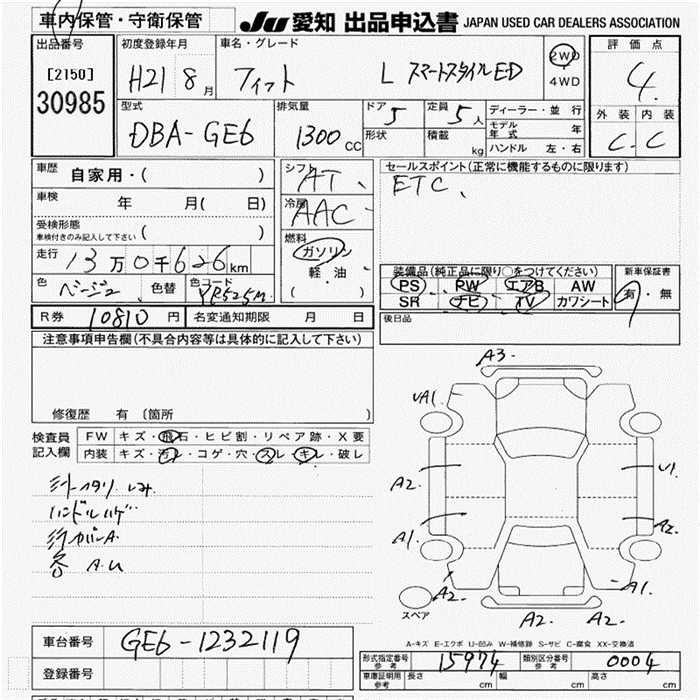 車内保管・守衛保管 JU 愛知 出品申込書 JAPAN USED CAR DEALERS ASSOCIATION
出品番号 初度登録年月 車名・グレード 評価点
[2150] H21 8月 フィット L スマートスタイルED 2WD・4WD 4
30985
型式 排気量 ドア 定員 ディーラー・並行 外装 内装
DBA-GE6 1300cc 5 5人 モデル年式 年 C C
形状 積載 kg ハンドル 左・右
車歴 自家用・( ) シフト AT セールスポイント(正常に機能するものに限ります)
車検 年 月( 日) 冷房 AAC ETC、
受検形態 車検付きのみ記入して下さい ( )
走行 13万0千626km 燃料 ガソリン 軽・油 ( )
装備品(純正品に限り○をつけてください) 新車保証書
色 ベージュ 色替 色コード YR525M
PS PW エアB AW 有・無
SR ナビ TV カワシート
R券 10810円 名変通知期限 月 日 後日品
注意事項申告欄(不具合内容等は具体的に記入して下さい)
修復歴 有 〔箇所 〕
検査員記入欄 FW キズ・飛石・ヒビ割・リペア跡・X要
内装 キズ・汚レ・コゲ・穴・スレ・キレ・破レ
ハンドルハゲ
各 A.U
A3
A2
A1
U1
A2
A1
A2
A2
A2
スペア
A-キズ E-エクボ U-凹み W-補修跡 S-サビ C-腐食 XX-交換済
車台番号 GE6-1232119
形式指定番号 参考 15974 類別区分番号 参考 0004
登録番号
車庫証明用 参考 長さ cm 幅 cm 高さ cm